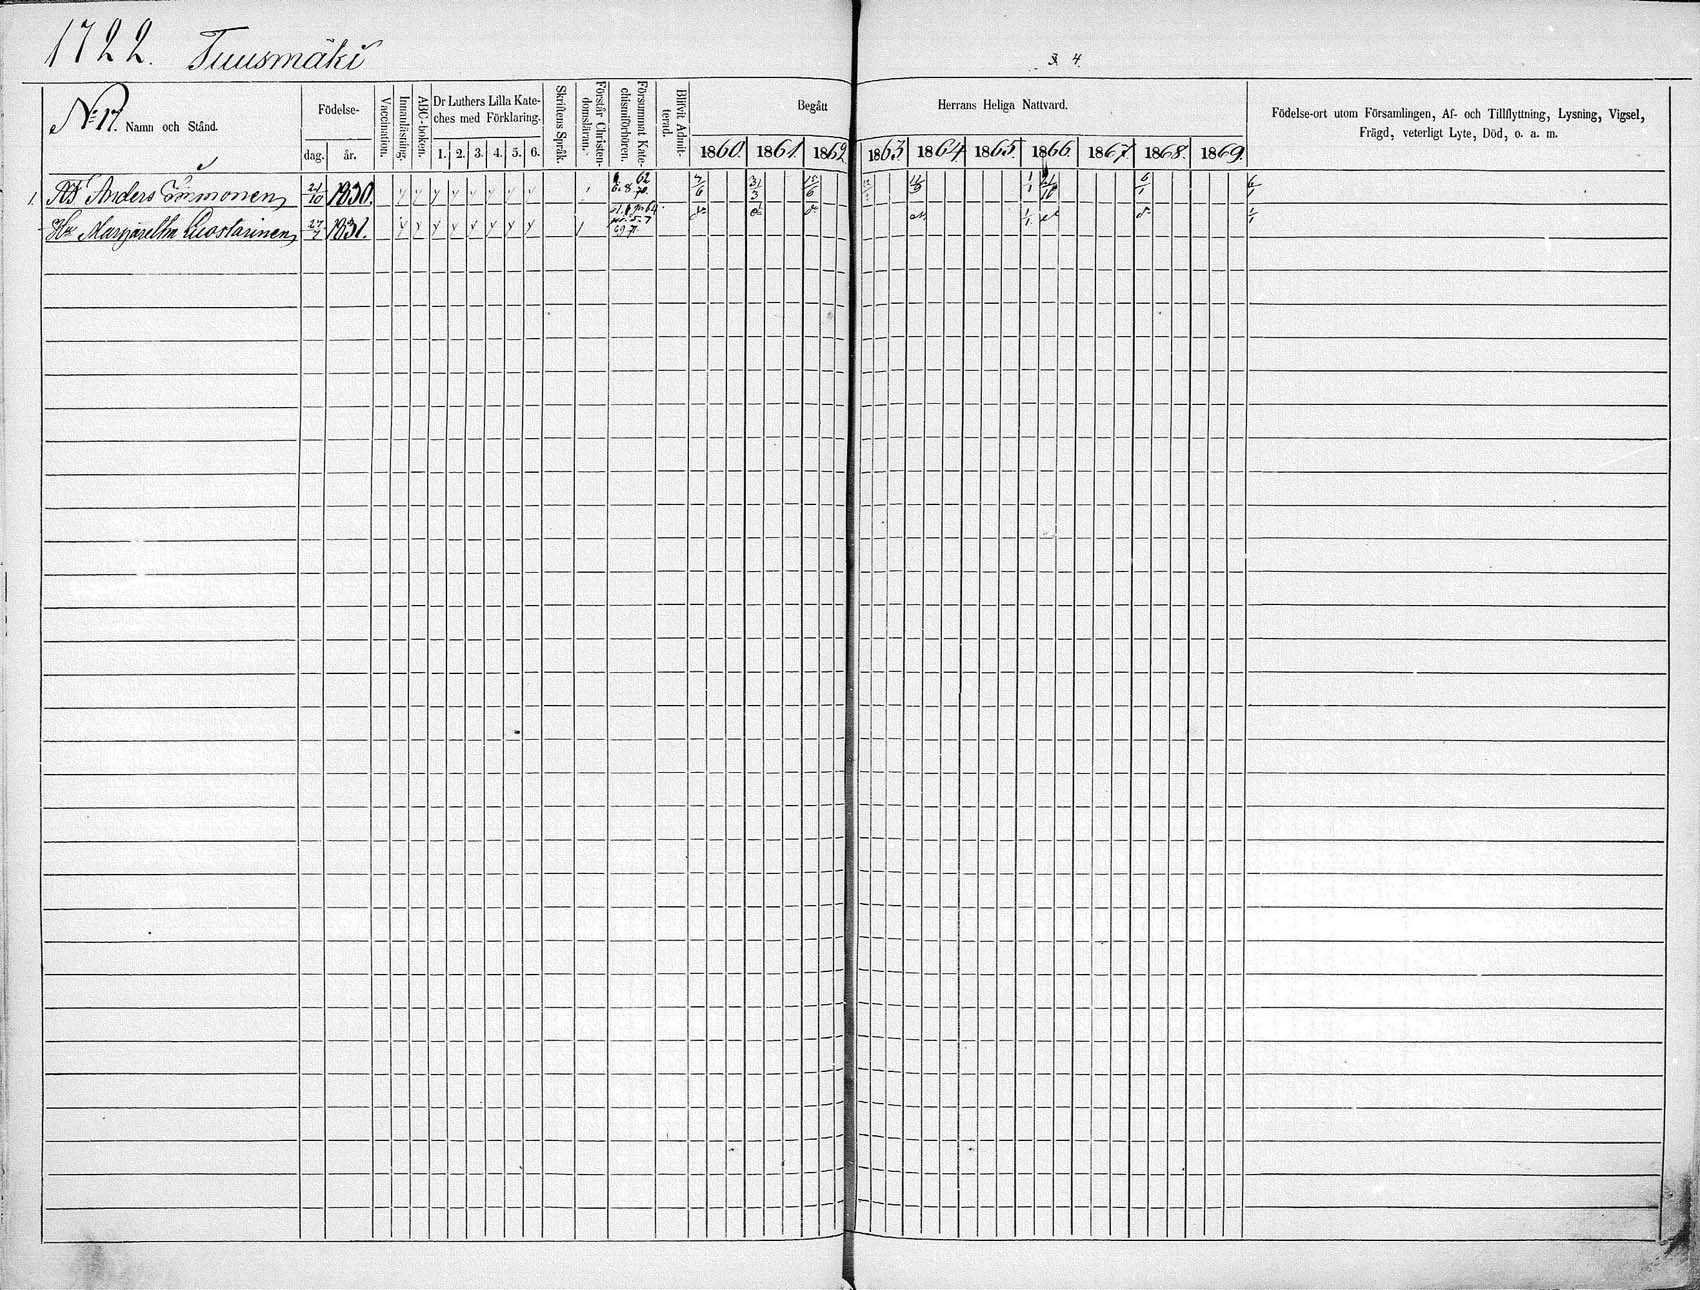 1722. Tuusmäki
3. 4.
No 17. Namn och Stånd.
Födelse-
dag. år.
Vaccination.
Innanläsning.
ABC-boken.
Dr Luthers Lilla Kate-
ches med Förklaring.
1. 2. 3. 4. 5. 6.
Skriftens Språk.
Förstår Christen-
domsläran.
Försummat Kate-
chismiförhören.
Blifvit Admit-
terad.
Begått Herrans Heliga Nattvard.
1860. 1861. 1862. 1863 1864 1865 1866. 1867 1868. 1869.
Födelse-ort utom Församlingen, Af- och Tillflyttning, Lysning, Vigsel,
Frägd, veterligt Lyte, Död, o. a. m.
1. Anders Immonen 21/10 1830. 62 6.8. 70. 7/6 31/3 15/6 1/1 21/10 6/1 6/1
Hu Margaretha Kuostarinen 27/7 1831. 69 71 1/1 1/1